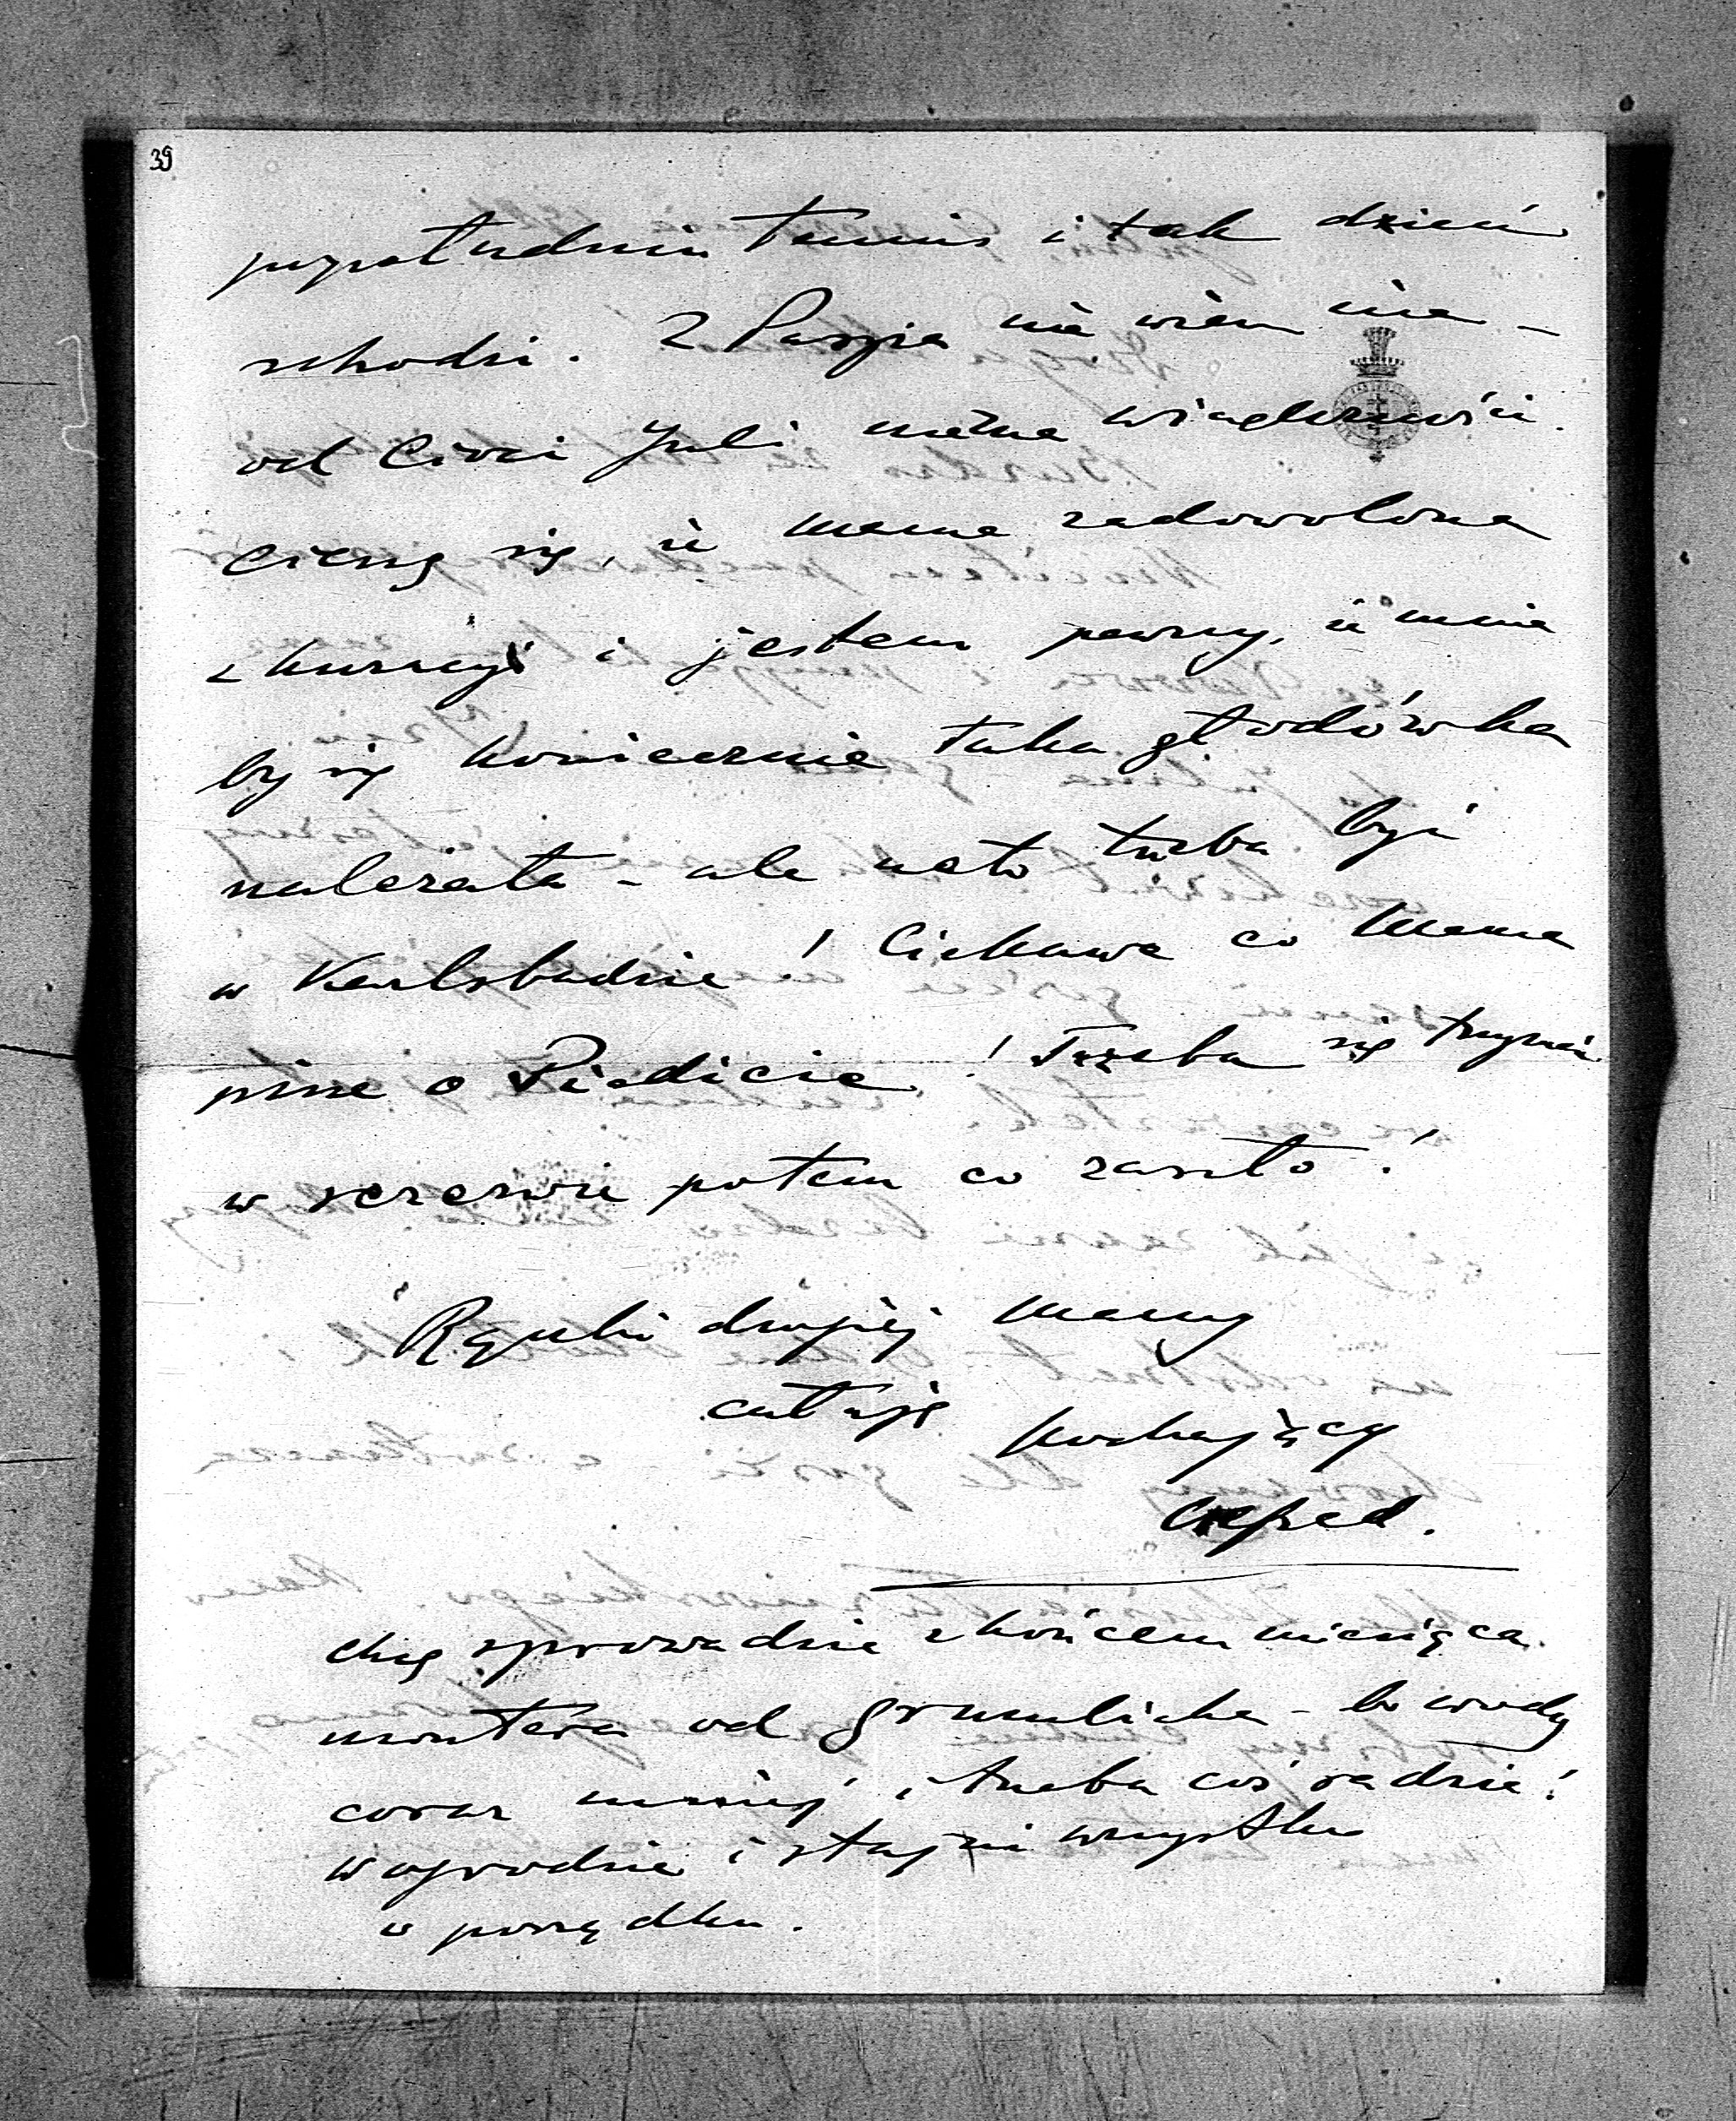 39
popołudniu tennis i tak dzień
schodzi. Z Paryża nie wiem nie –
od Cioci Juli ważna wiadomości.
Cieszę się, iż Mama zadowolona
z kuracyi i jestem pewny, iż mnie
by się koniecznie taka głodówka
należała – ale na to trzeba być
w Karlsbadzie! Ciekawe co Mama
pisze o Piodicie! Trzeba się trzymać
w rezerwie potem co zaszło!
Rączki drogiej Mamy
całuję kochający
Alfred.
chcę sprowadzić z końcem miesiąca
montera od Grumlicha – bo wody
coraz mniej i trzeba coś radzić!
W ogrodzie i stajni wszystko
w porządku.